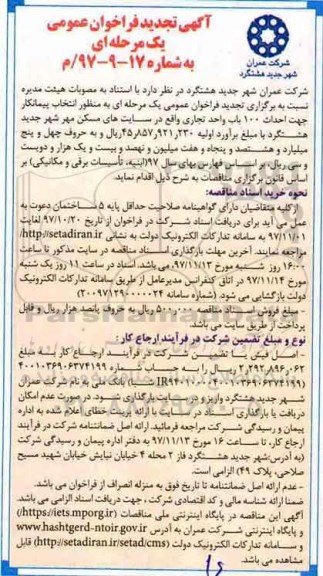 آگهی تجدید فراخوان عمومی
یک مرحله ای
به شماره ۱۷-۹-۹۷/م
شرکت عمران
شهر جدید هشتگرد
شرکت عمران شهر جدید هشتگرد در نظر دارد با استناد به مصوبات هیئت مدیره
نسبت به برگزاری تجدید فراخوان عمومی یک مرحله ای به منظور انتخاب پیمانکار
جهت احداث ۱۰۰ باب واحد تجاری واقع در سایت های مسکن مهر شهر جدید
هشتگرد با مبلغ برآورد اولیه ۴۵٫۸۵۷٫۹۲۱٫۲۳۰ ریال و به حروف چهل و پنج
میلیارد و هشتصد و پنجاه و هفت میلیون و نهصد و بیست و یک هزار و دویست
و سی ریال بر اساس فهارس بهای سال ۹۷ (ابنیه، تأسیسات برقی و مکانیکی) بر
اساس قانون برگزاری مناقصات به شرح ذیل اقدام نماید.
نحوه خرید اسناد مناقصه:
از کلیه متقاضیان دارای گواهینامه صلاحیت حداقل پایه ۵ ساختمان دعوت به
عمل می آید برای دریافت اسناد شرکت در فراخوان از تاریخ ۹۷/۱۰/۲۰ لغایت
۹۷/۱۱/۰۱ به سامانه تدارکات الکترونیک دولت به نشانی http://setadiran.ir
مراجعه نمایند. آخرین مهلت بارگذاری اسناد مناقصه در سایت مذکور تا ساعت
۱۶:۰۰ روز شنبه مورخ ۹۷/۱۱/۱۳ می باشد. اسناد در ساعت ۱۱ روز یک شنبه
مورخ ۹۷/۱۱/۱۴ در اتاق کنفرانس مدیرعامل از طریق سامانه تدارکات الکترونیک
دولت بازگشایی می شود. (شماره سامانه ۲۰۰۹۷۱۲۹۰۰۰۰۰۲۴)
- مبلغ فروش اسناد مناقصه ۵۰۰٫۰۰۰ ریال به حروف پانصد هزار ریال و قابل
پرداخت از طریق سایت می باشد.
نوع و مبلغ تضمین شرکت در فرآیند ارجاع کار:
- اصل فیش یا تضمین شرکت در فرآیند ارجاع کار به مبلغ
۲٫۲۹۲٫۸۹۶٫۰۶۲ ریال را به حساب شماره ۴۰۰۱۰۳۶۹۰۶۳۷۴۱۹۹
شهر جدید هشتگرد واریز و در سایت بارگذاری شود. در صورت عدم امکان
دریافت یا بارگذاری اسناد در سایت با ارائه پرینت خطای اعلام شده به اداره
پیمان و رسیدگی شرکت مراجعه فرمائید. ارائه اصل ضمانتنامه شرکت در فرآیند
ارجاع کار، تا ساعت ۱۶ مورخ ۹۷/۱۱/۱۳ به دفتر اداره پیمان و رسیدگی شرکت
(به آدرس: شهر جدید هشتگرد فاز ۲ محله ۴ خیابان نیایش خیابان شهید مسیح
صلاحی، پلاک ۴۹) الزامی است.
- عدم ارائه اصل ضمانتنامه تا تاریخ فوق به منزله انصراف از فراخوان می باشد.
ضمنا ارائه شناسه مالی و کد اقتصادی شرکت، جهت دریافت اسناد الزامی می باشد.
آگهی این مناقصه در پایگاه اینترنتی ملی مناقصات (https://iets.mporg.ir)
و پایگاه اینترنتی شرکت عمران به آدرس www.hashtgerd-ntoir.gov.ir
و سامانه تدارکات الکترونیک دولت (http://setadiran.ir/setad/cms) قابل
مشاهده می باشد.